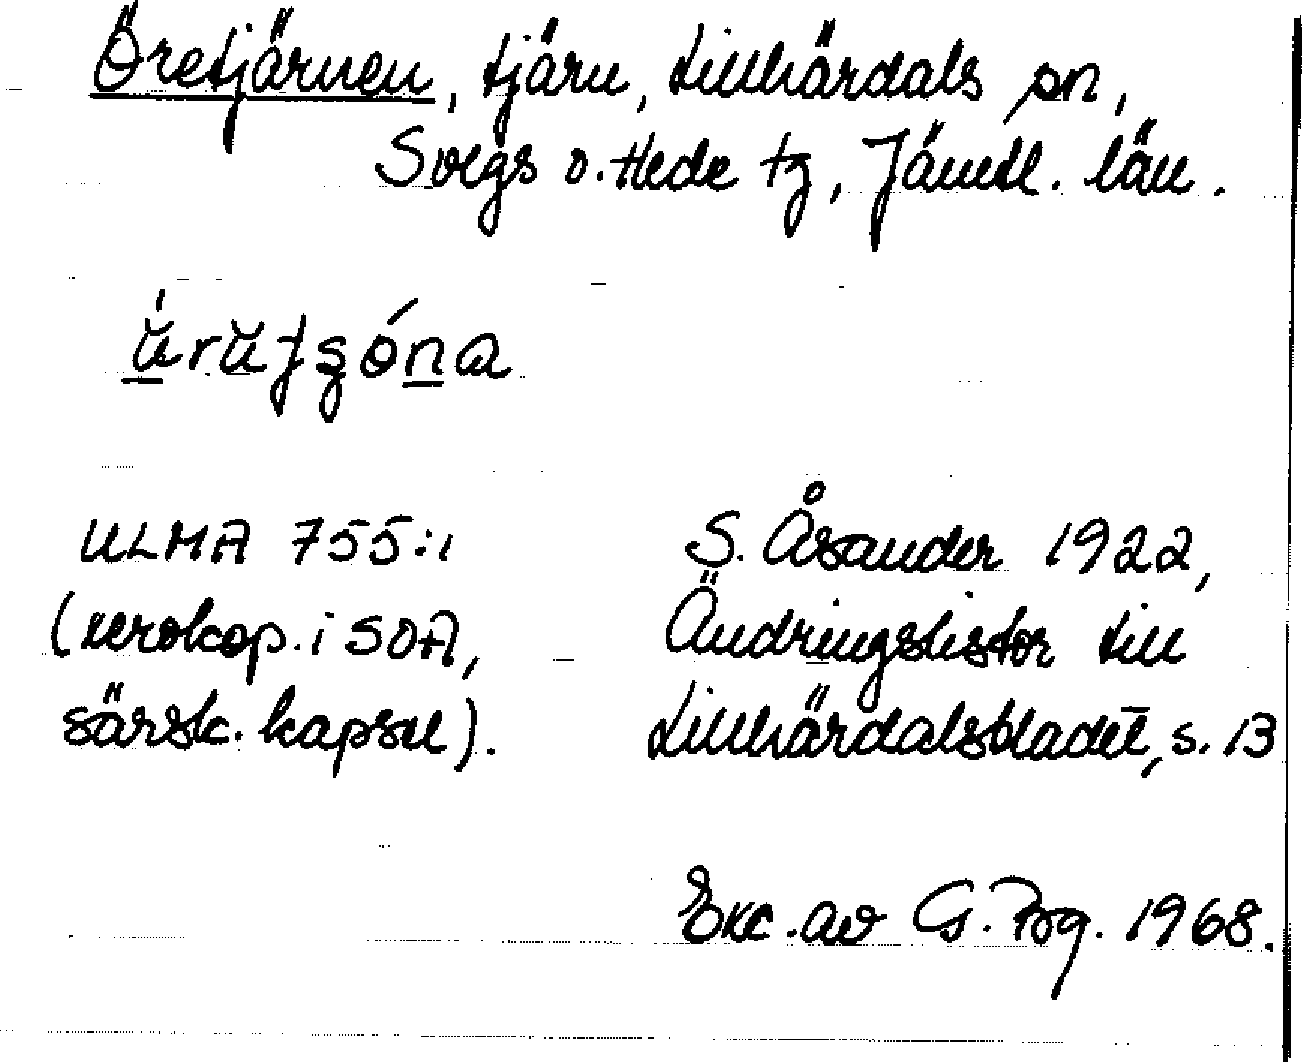 Öretjärnen, tjärn, Lillhärdals sn,
Svegs o. Hede tg, Jämtl. län.
ULMA 755:1
(xerokop. i SOA,
särsk. kapsel).
S. Åsander 1922,
Ändringslistor till
Lillhärdalsbladet, s. 13
Exc. av G. Bg. 1968.